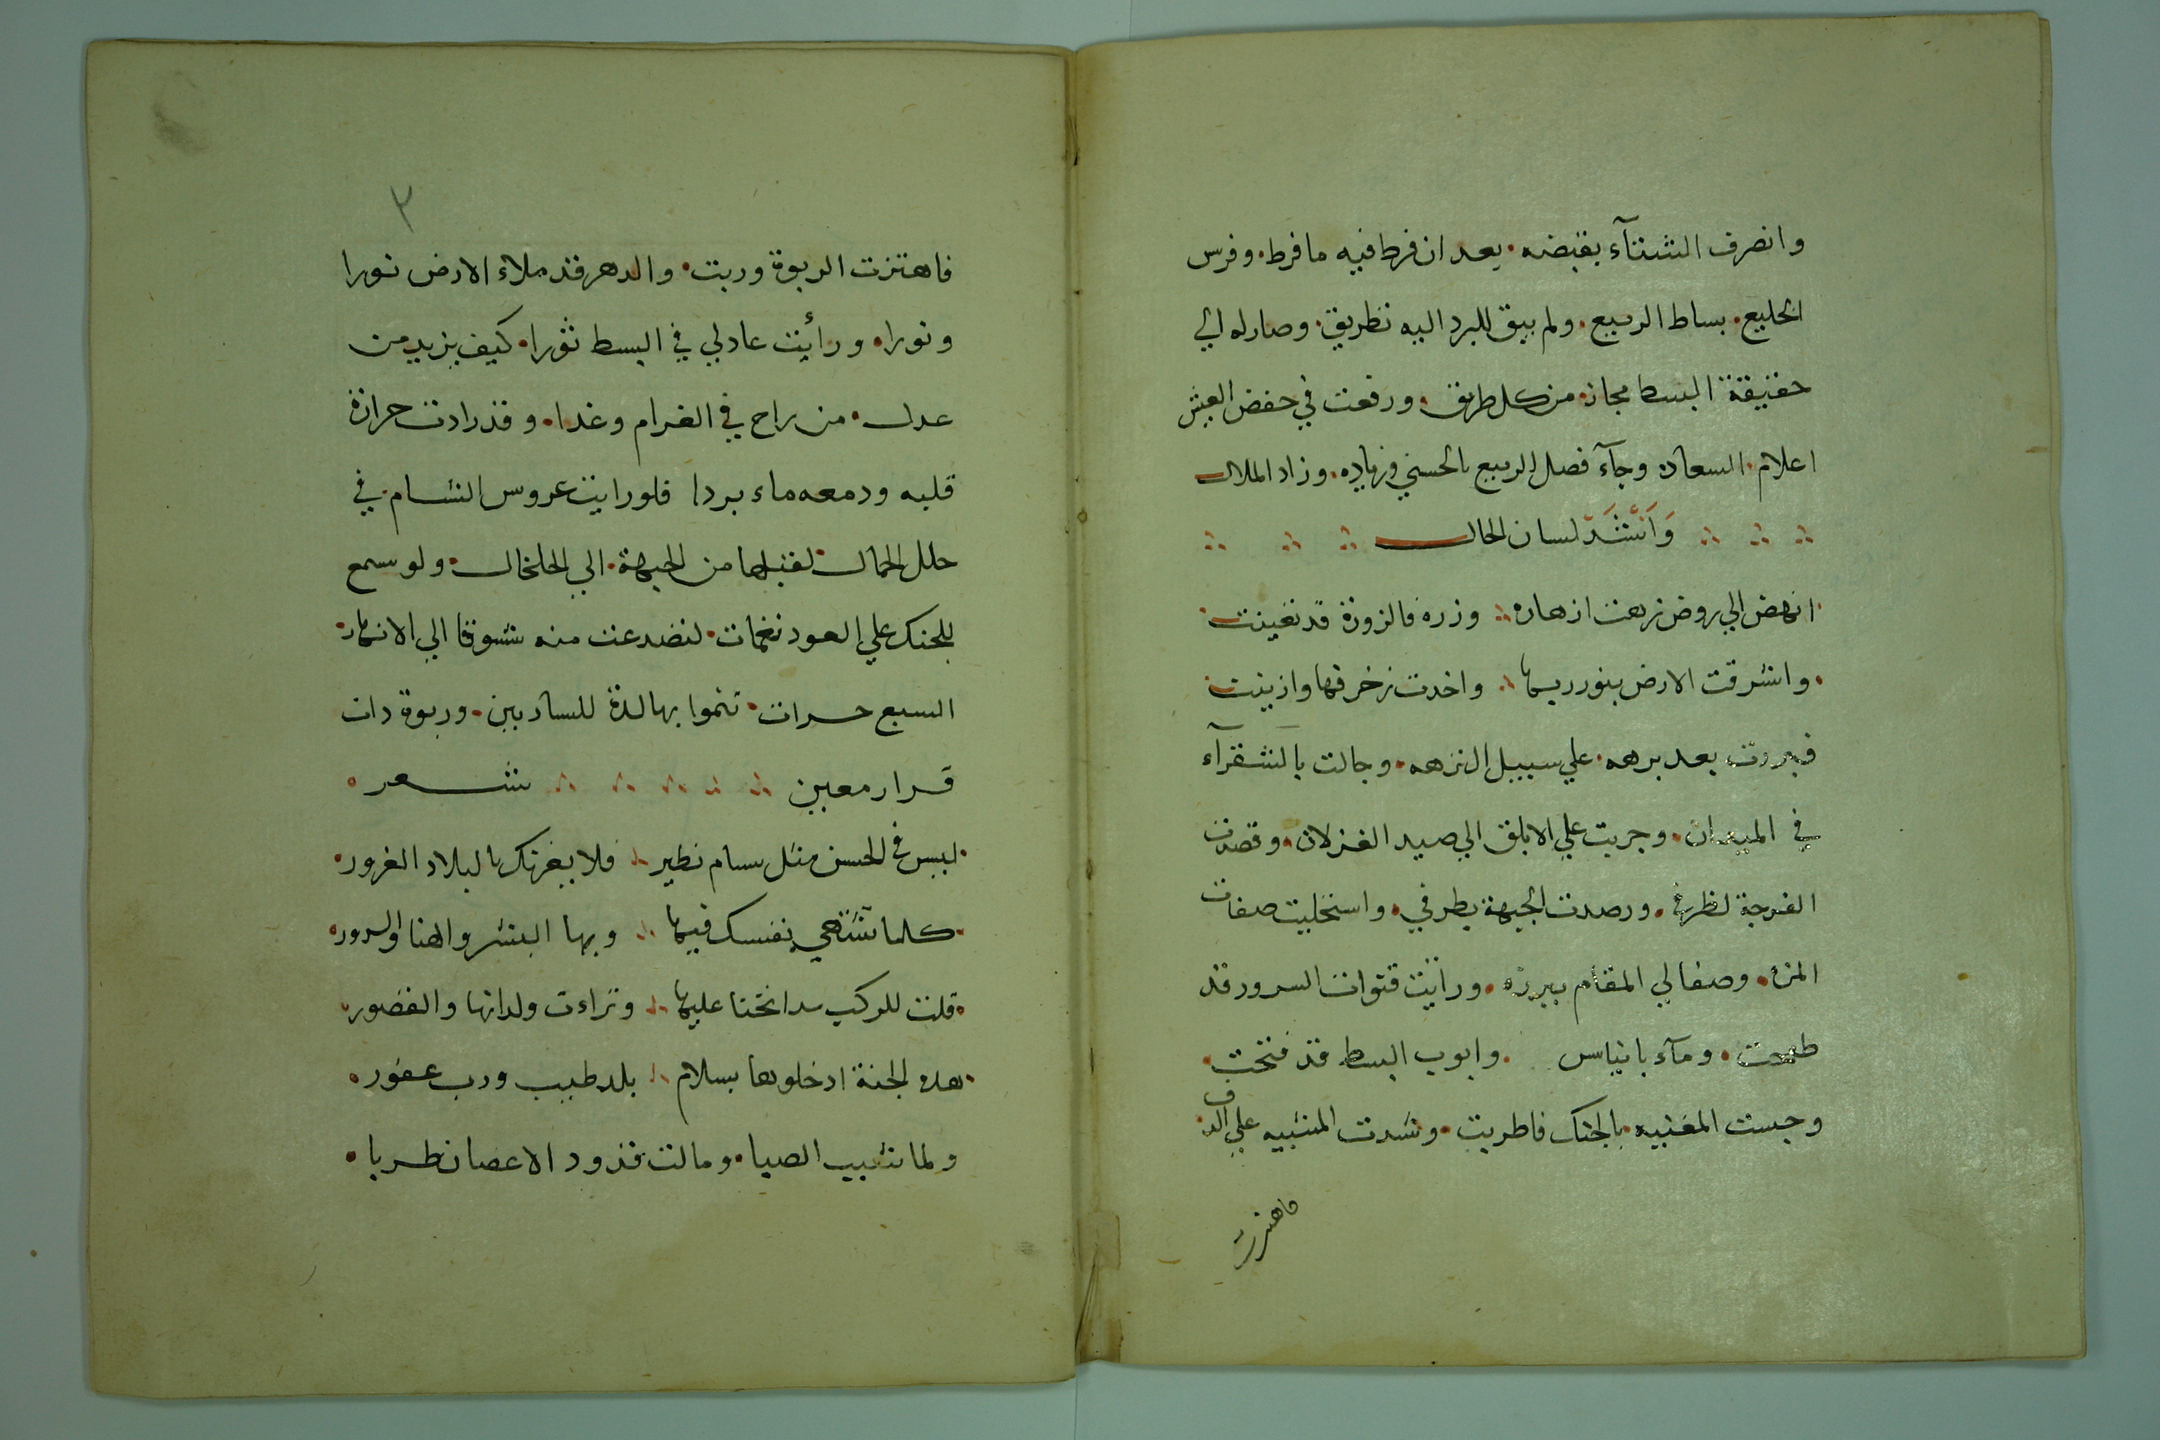 وانصرف الشتآء بقبضه. بعد ان فرط فيه ما فرط. وفرس
الخليع. بساط الربيع. ولم يبق للبرد اليه تطريق. وصار له الي
حقيقة البسط مجاز. من كل طريق. ورفعت في خفض العيش
اعلام. السعاده وجآء فصل الربيع بالحسني وزياده. وزاد الملال
وَاَنْشَدَ لسان الحال
انهض الي روض زهت ازهاره وزره فالزورة قد تعينت
واشرقت الارض بنور ربها واخدت زخرفها وازينت
فبررت بعد برهه. علي سبيل النزهه. وجالت بالشقرآء
في الميدان. وجريت علي الابلق الي صيد الغزلان. وقصدت
الفرجة لظرفي. ورصدت الجبهة بطرفي. واستحليت صفات
المزه. وصفا لي المقام ببرزه. ورأيت قنوات السرور قد
طفحت. ومآء بانياس. وابوب البسط قد فتحت.
وجست المغنيه بالجنك فاطربت. وشدت المشببه علي الدف.
فاهتزت
٣
فاهتزت الربوة وربت. والدهر قد ملاء الارض نورا
ونورا. ورأيت عادلي في البسط ثورا. كيف يزيد من
عدل. من راح في الغرام وغدا. وقد زادت حرارة
قلبه ودمعه ماء بردا فلو رايت عروس الشام في
حلل الجمال. لقبلها من الجبهة. الي الخلخال. ولو سمع
للجنك علي العود نغمات. لتصدعت منه شوقا الي الانهار.
السبع حسرات. تنموا بها لدة للشاربين. وربوة دات
قرار معين شعر
ليس في الحسن مثل سام نظير فلا يغرنك بالبلاد الغرور
كلما تشتهي نفسك فيها وبها البشر والهنا والسرور
قلت للركب مد انخنا عليها وتراءت ولدانها والقصور
هده الجنة ادخلوها بسلام بلد طيب ورب غفور
ولما شبب الصبا. ومالت قدود الاغصان طربا.